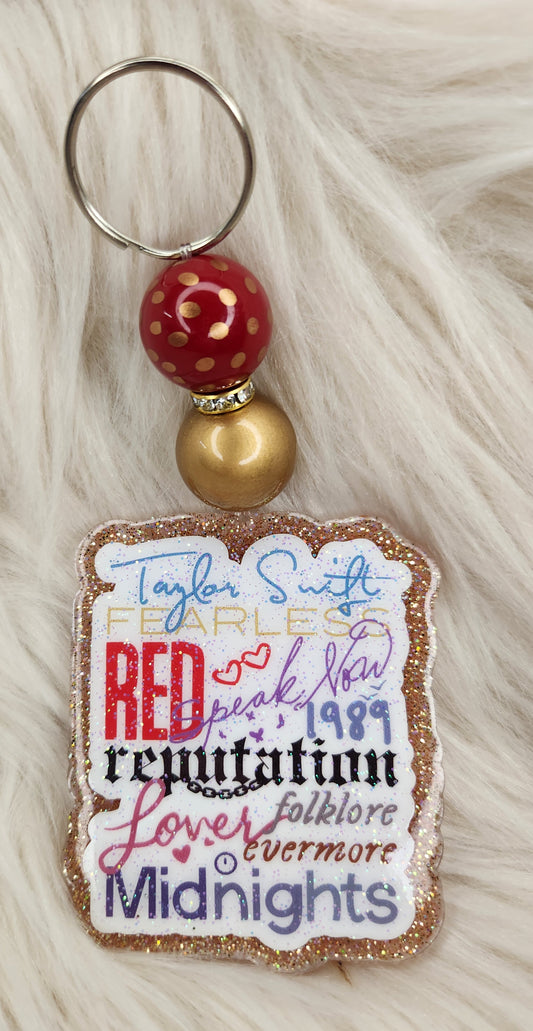 Taylor Swift
FEARLESS
RED
Speak Now
1989
reputation
Lover
folklore
evermore
Midnights